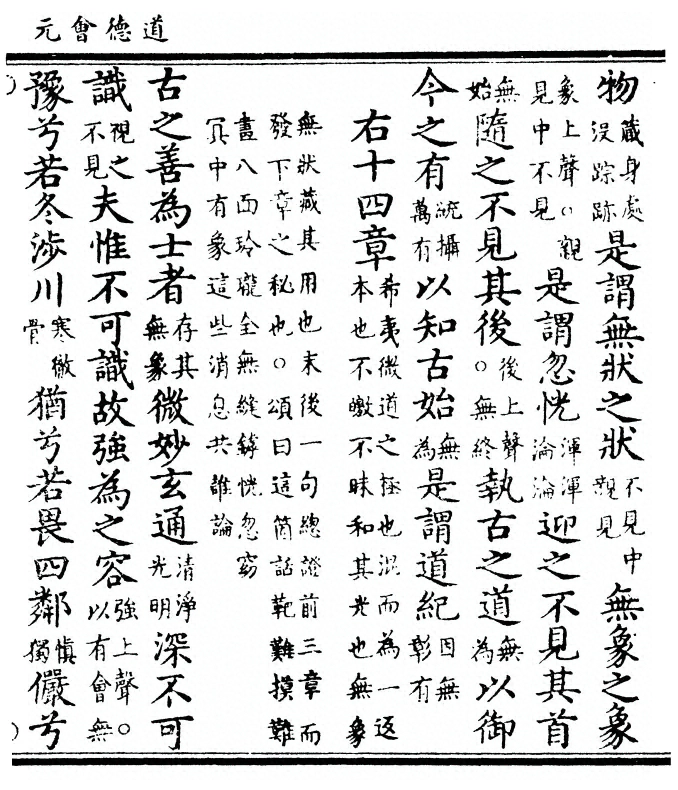 道德會元
物藏身處沒踪跡是謂無狀之狀不見中親見無象之象
象上聲○親見中不見是謂忽恍渾渾淪淪迎之不見其首
無始隨之不見其後○後上聲無終執古之道無為以御
今之有統攝萬有以知古始無為是謂道紀因無彰有
右十四章希夷微道之極也混而為一返本也不皦不昧和其光也無象
無狀藏其用也末後一句總證前三章而
發下章之秘也○頌曰這箇話靶難摸難
畫八面玲瓏全無縫罅恍忽窈
冥中有象這些消息共誰論
古之善為士者存其無象微妙玄通清淨光明深不可
識視之不見夫惟不可識故強為之容強上聲○以有會無
豫兮若冬涉川寒徹骨猶兮若畏四鄰慎獨儼兮